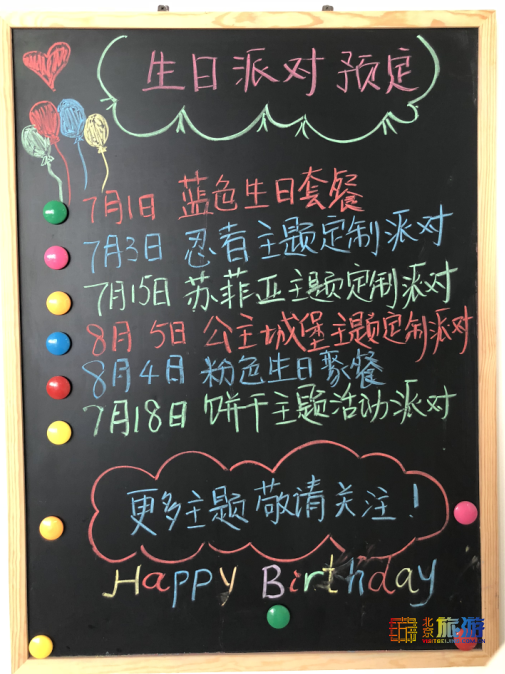 生日派对预定
7月1日 蓝色生日套餐
7月3日 忍者主题定制派对
7月15日 苏菲亚主题定制派对
8月5日 公主城堡主题定制派对
8月4日 粉色生日聚餐
7月18日 饼干主题活动派对
更多主题敬请关注！
Happy Birthday
北京旅游